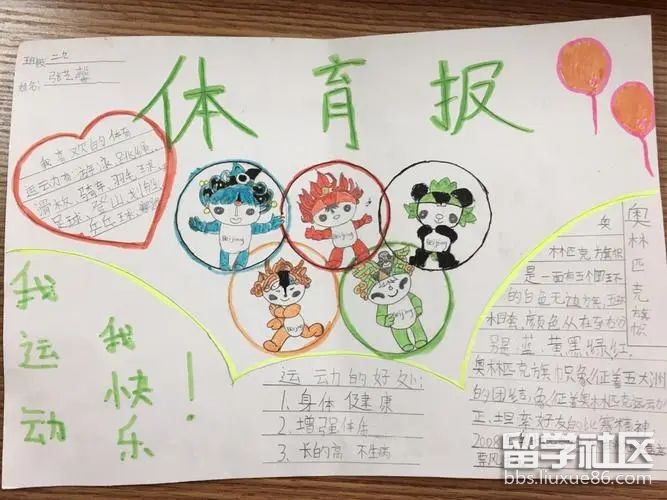 班级:二、
姓名:张艺馨
体育报
我喜欢的体育
运动有游泳、跳绳、
滑板、骑车、羽毛球、
足球、爬山、
乒乓球、
Beijing
Beijing
Beijing
Beijing
Beijing
我运动
我快乐!
运动的好处:
1、身体健康
2、增强体质
3、长的高 不生病
奥林匹克旗帜
奥
林匹克旗帜
是一面有三个圆环
的白色无边旗,五环
相套,颜色从左至右分
别是蓝、黄、黑、绿、红,
奥林匹克旗帜象征着五大洲
的团结,象征着奥林匹克运动公
正、坦率、好友的比赛精神。
200
留学社区
bbs.liuxue86.com